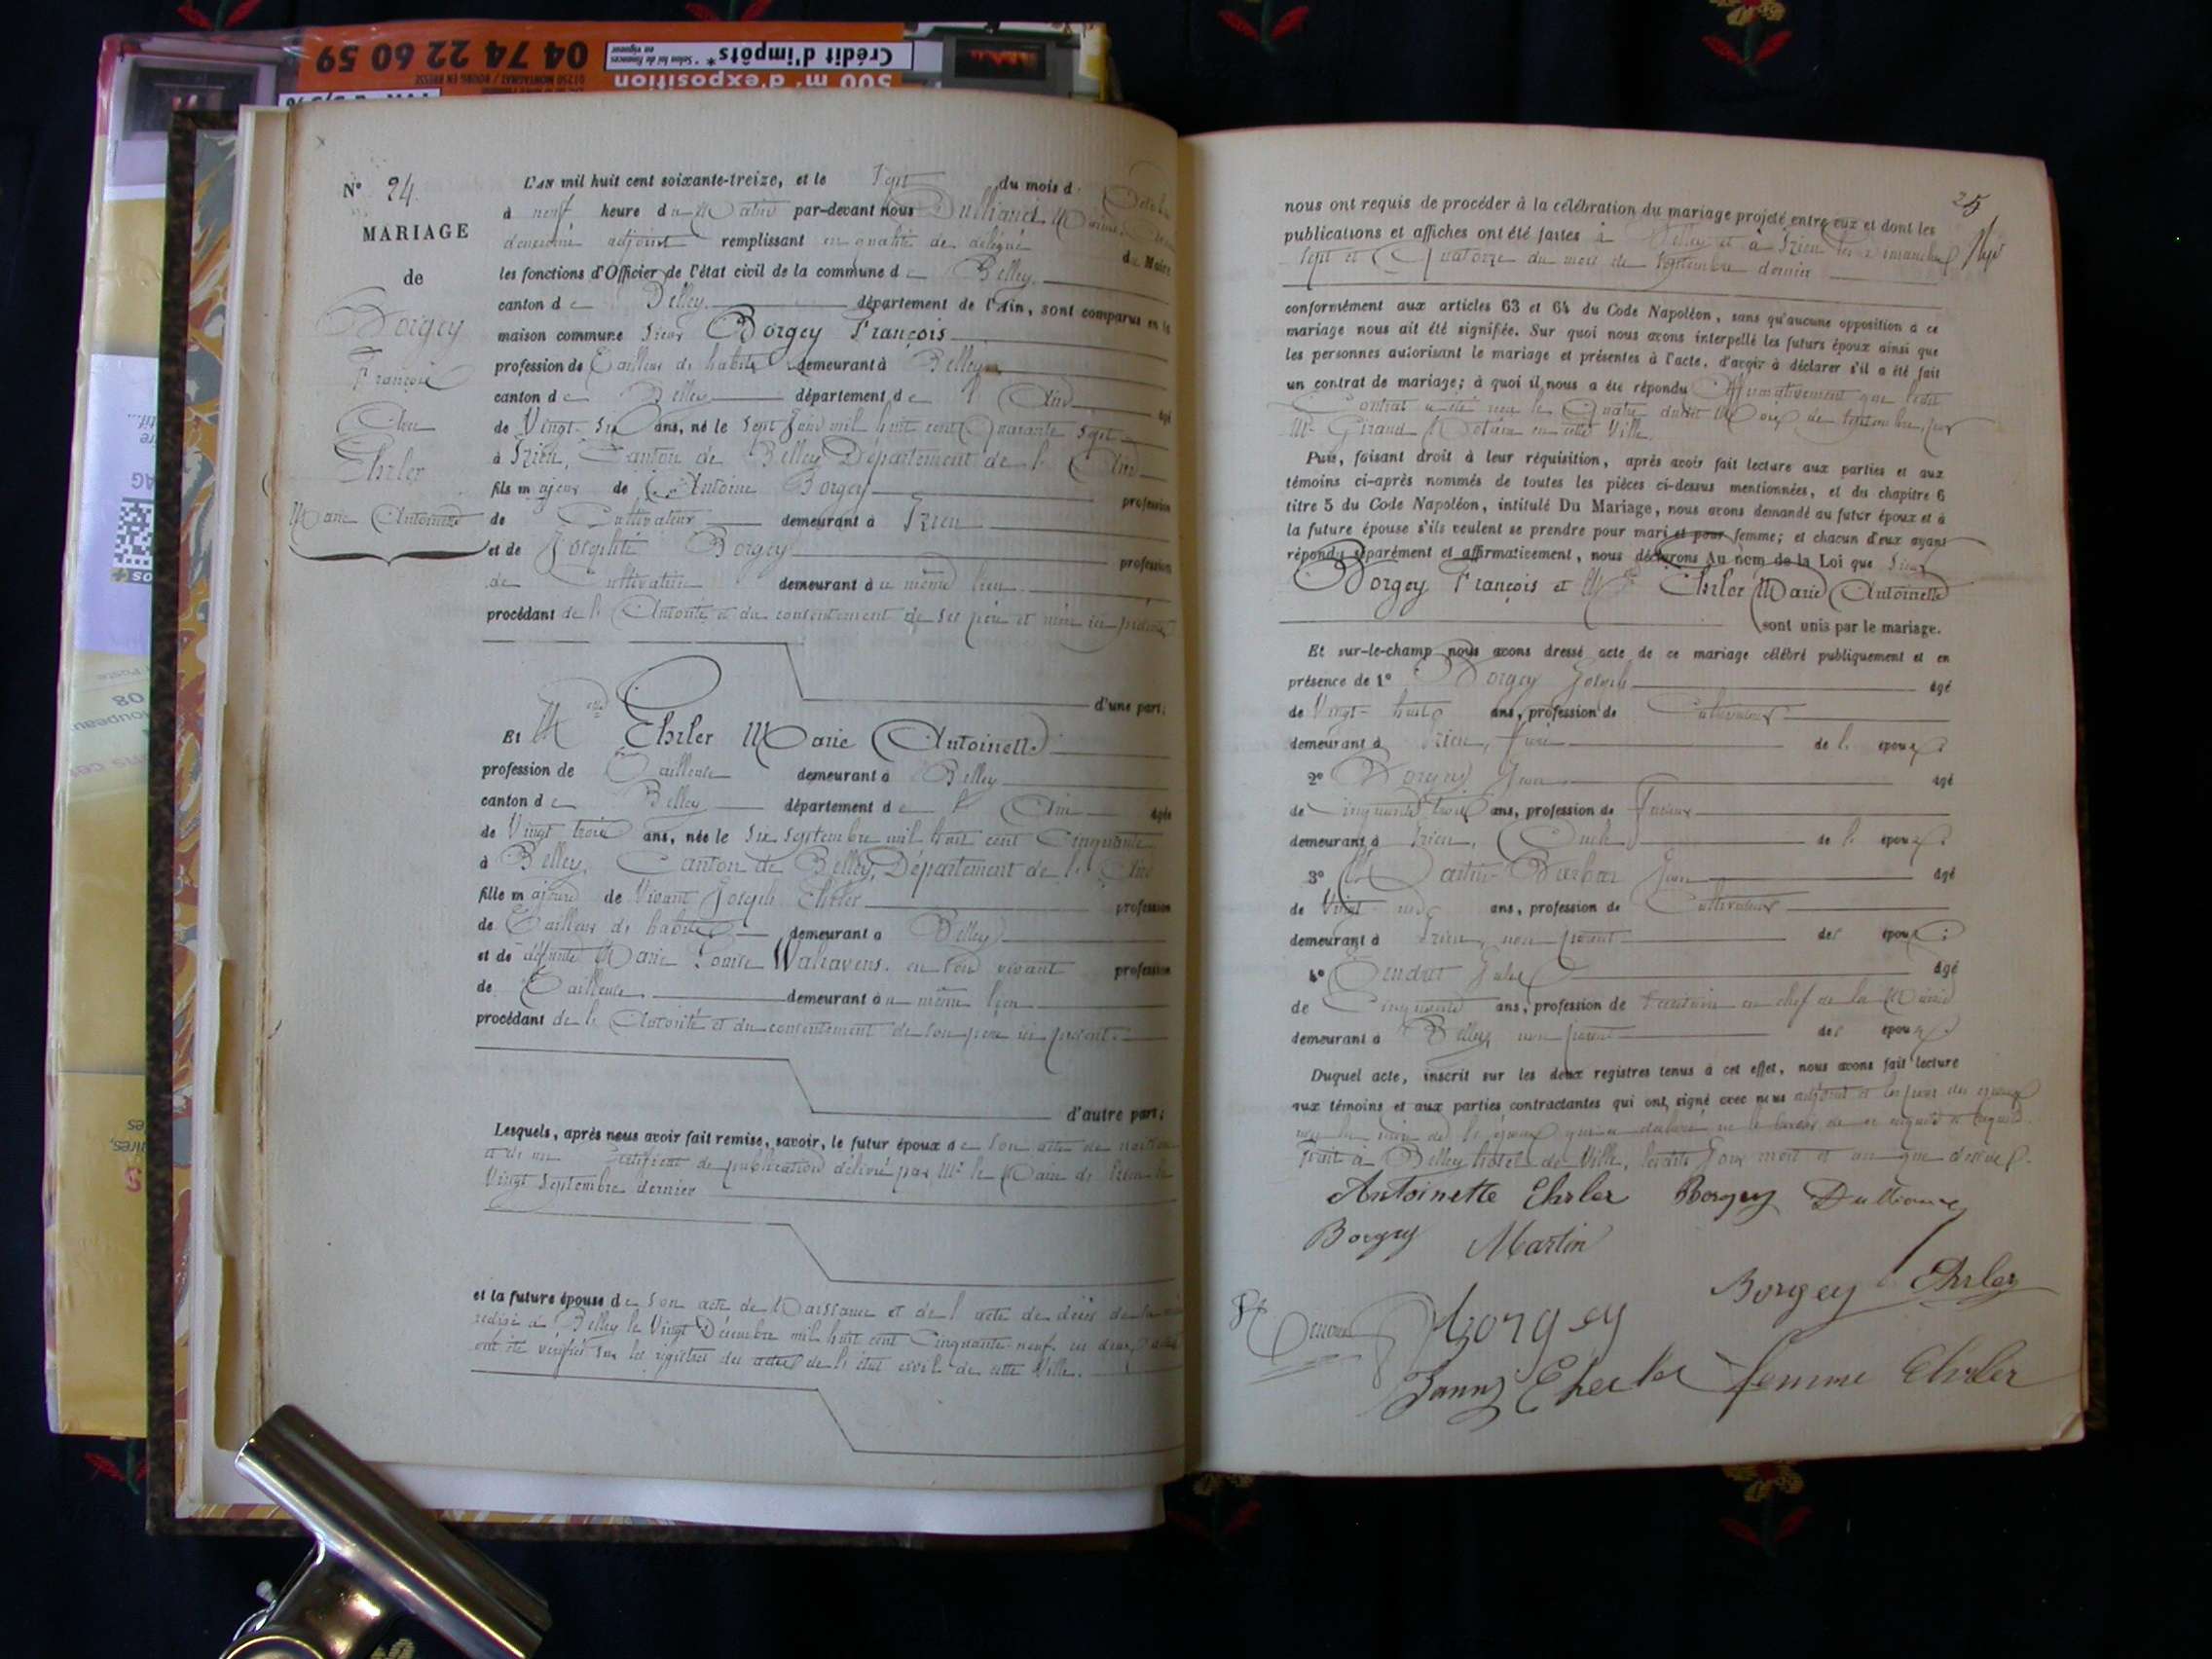 04 74 22 60 59
01250 MONTAGNAT / BOURG EN BRESSE
Crédit d'impôts*
* Selon loi de finances en vigueur
500 m² d'exposition
N° 24
MARIAGE
de
Borgey
François
Ehrler
Marie Antoinette
L'AN mil huit cent soixante-treize, et le sept du mois d'
à neuf heure du Matin par-devant nous Dulliand
deuxième adjoint remplissant en qualité de délégué du Maire
les fonctions d'Officier de l'état civil de la commune de Belley
canton de Belley département de l'Ain, sont comparus en la
maison commune Sieur Borgey François
profession de Tailleur d'habits demeurant à Belley
canton de Belley département de l'Ain âgé
de Vingt-six ans, né le sept Juin mil huit cent Quarante sept
à Izieu, Canton de Belley Département de l'Ain
fils majeur de Antoine Borgey profession
de Cultivateur demeurant à Izieu
et de Borgey profession
de Cultivatrice demeurant au même lieu
procédant de l'Autorité et du consentement de ses père et mère ici présents
d'une part;
Et Melle Ehrler Marie Antoinette
profession de Tailleuse demeurant à Belley
canton de Belley département de l'Ain âgée
de Vingt trois ans, née le Six Septembre mil huit cent Cinquante
à Belley, Canton de Belley, Département de l'Ain
fille majeure de Vivant Joseph Ehrler profession
de Tailleur d'habits demeurant à Belley
et de défunte Marie Louise Walravens, en son vivant profession
de Tailleuse demeurant au même lieu
procédant de l'Autorité et du consentement de son père ici présent.
d'autre part;
Lesquels, après nous avoir fait remise, savoir, le futur époux de son acte de naissance
et d'un Certificat de publication délivré par Mr le Maire d'Izieu le
Vingt Septembre dernier
et la future épouse de son acte de Naissance et de l'acte de décès de sa mère
rédigé à Belley le Vingt Décembre mil huit cent Cinquante-neuf, ces deux actes
ont été vérifiés sur les registres des actes de l'état civil de cette Ville.
25
nous ont requis de procéder à la célébration du mariage projeté entre eux et dont les
publications et affiches ont été faites à Belley et à Izieu les Dimanches
Sept et Quatorze du mois de Septembre dernier
conformément aux articles 63 et 64 du Code Napoléon, sans qu'aucune opposition à ce
mariage nous ait été signifiée. Sur quoi nous avons interpellé les futurs époux ainsi que
les personnes autorisant le mariage et présentes à l'acte, d'avoir à déclarer s'il a été fait
un contrat de mariage; à quoi il nous a été répondu Affirmativement que ledit
Contrat a été reçu le Quatre dudit Mois de Septembre, par
Me Giraud Notaire en cette Ville.
Puis, faisant droit à leur réquisition, après avoir fait lecture aux parties et aux
témoins ci-après nommés de toutes les pièces ci-dessus mentionnées, et du chapitre 6
titre 5 du Code Napoléon, intitulé Du Mariage, nous avons demandé au futur époux et à
la future épouse s'ils veulent se prendre pour mari et pour femme; et chacun d'eux ayant
répondu séparément et affirmativement, nous déclarons Au nom de la Loi que Sieur
Borgey François et Melle Ehrler Marie Antoinette
sont unis par le mariage.
Et sur-le-champ nous avons dressé acte de ce mariage célébré publiquement et en
présence de 1° Borgey Joseph âgé
de Vingt-huit ans, profession de Cultivateur
demeurant à Izieu, frère de l'époux
2° Borgey Jean âgé
de Cinquante trois ans, profession de
demeurant à Izieu, Oncle de l'époux
3° Martin-Barbaz Jean âgé
de Vingt ans, profession de Cultivateur
demeurant à Izieu, non parent des époux
4° Jules âgé
de Cinquante ans, profession de Secrétaire en chef de la Mairie
demeurant à Belley non parent des époux
Duquel acte, inscrit sur les deux registres tenus à cet effet, nous avons fait lecture
aux témoins et aux parties contractantes qui ont signé avec nous adjoint et les pères des époux
non la mère de l'époux qui a déclaré ne le savoir de ce enquise et requise.
Fait à Belley hôtel de Ville, lesdits Jour mois et an que dessus.
Antoinette Ehrler Borgey Dulliand
Borgey Martin
Borgey Ehrler
Borgey
femme Ehrler